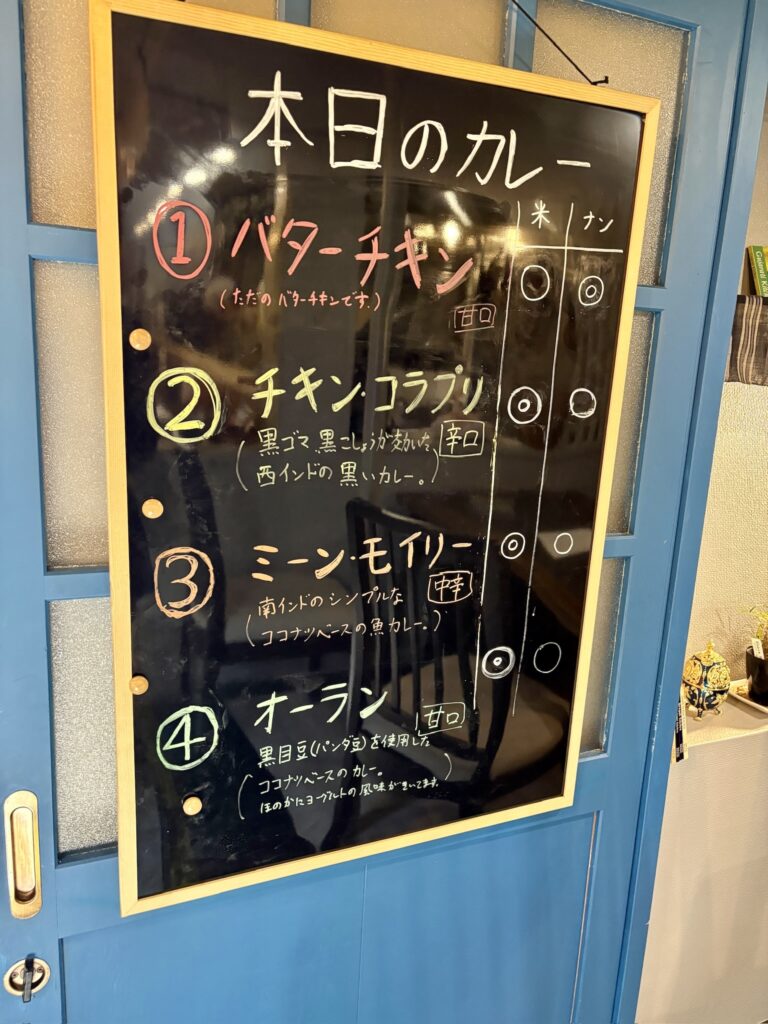 本日のカレー
米 ナン
① バターチキン ○ ◎
(ただの バターチキンです。)
甘口
② チキン・コラプリ ◎ ○
(黒ゴマ、黒こしょうが効いた、 辛口
西インドの黒いカレー。)
③ ミーン・モイリー ◎ ○
南インドのシンプルな 中辛
(ココナツベースの魚カレー。)
④ オーラン ◎ ○
甘口
黒目豆(パンダ豆)を使用した
(ココナツベースのカレー。
ほのかにヨーグルトの風味がきいてます。)